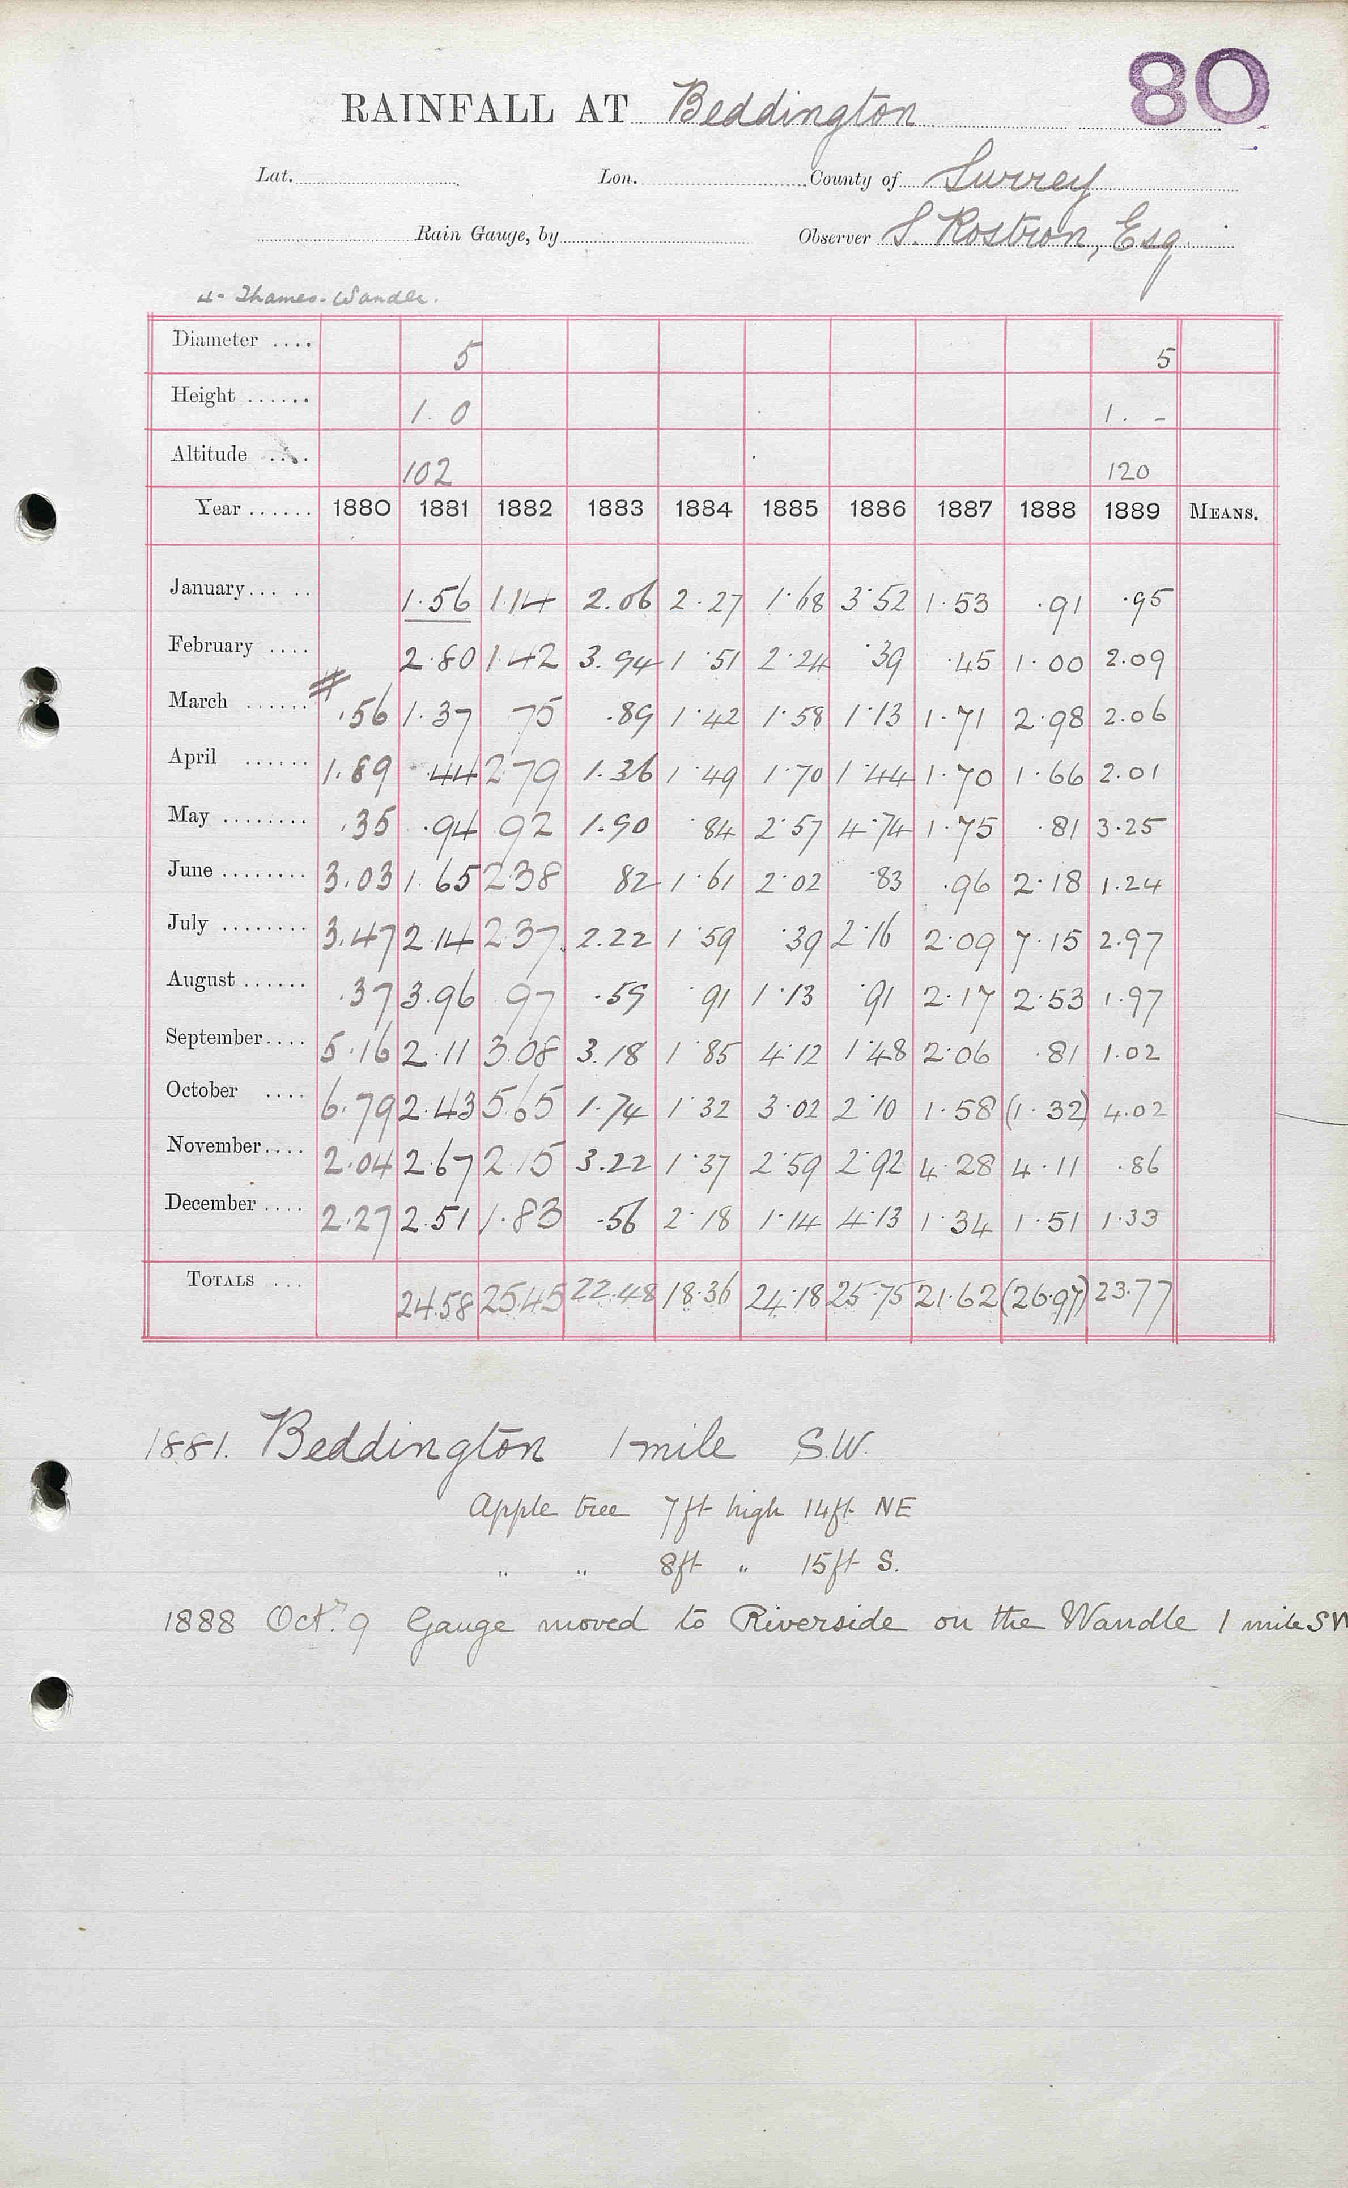 80
RAINFALL AT Beddington
Lat. Lon. County of Surrey
Rain Gauge, by Observer S. Rostron, Esq.
4 - Thames - Wandle.
Diameter .... 5 5
Height ...... 1. 0 1. -
Altitude .... 102 120
Year ...... 1880 1881 1882 1883 1884 1885 1886 1887 1888 1889 MEANS.
January ... .. 1.56 1.14 2.06 2.27 1.68 3.52 1.53 .91 .95
February .... 2.80 1.42 3.94 1.51 2.24 .39 .45 1.00 2.09
March ...... .56 1.37 75 .89 1.42 1.58 1.13 1.71 2.98 2.06
April ...... 1.89 .44 2.79 1.36 1.49 1.70 1.44 1.70 1.66 2.01
May ........ .35 .94 92 1.90 .84 2.57 4.74 1.75 .81 3.25
June ........ 3.03 1.65 2.38 82 1.61 2.02 .83 .96 2.18 1.24
July ........ 3.47 2.14 2.37 2.22 1.59 .39 2.16 2.09 7.15 2.97
August ...... .37 3.96 97 .59 .91 1.13 .91 2.17 2.53 1.97
September .... 5.16 2.11 3.08 3.18 1.85 4.12 1.48 2.06 .81 1.02
October .... 6.79 2.43 5.65 1.74 1.32 3.02 2.10 1.58 (1.32) 4.02
November .... 2.04 2.67 2.15 3.22 1.37 2.59 2.92 4.28 4.11 .86
December .... 2.27 2.51 1.83 .56 2.18 1.14 4.13 1.34 1.51 1.33
TOTALS ... 24.58 25.45 22.48 18.36 24.18 25.75 21.62 (26.97) 23.77
1881. Beddington 1 mile S.W.
Apple tree 7ft high 14ft NE
" " 8ft " 15ft S.
1888 Oct. 9 Gauge moved to Riverside on the Wandle 1 mile SW